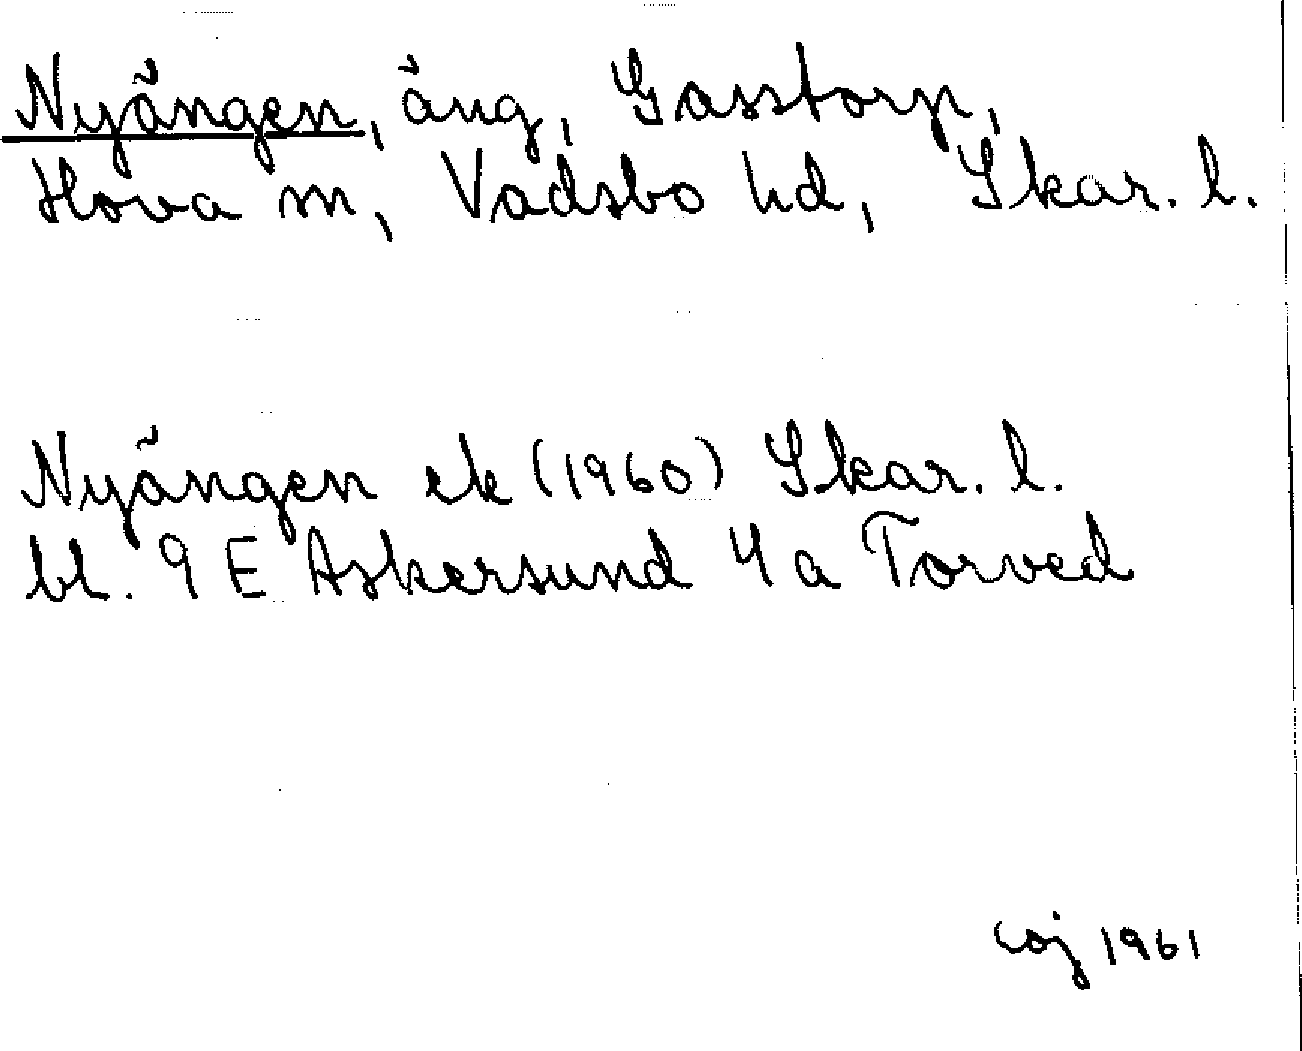 Nyängen, äng, Gasstorp,
Hova sn, Vadsbo hd, Skar. l.
Nyängen ek (1960) Skar. l.
bl. 9 E Askersund 4 a Torved
coj 1961